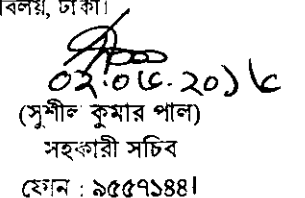 বালয়, ঢাকা।
০২.০৫.২০১৮
(সুশীল কুমার পাল)
সহকারী সচিব
ফোন : ৯৫৫৭১৪৪।